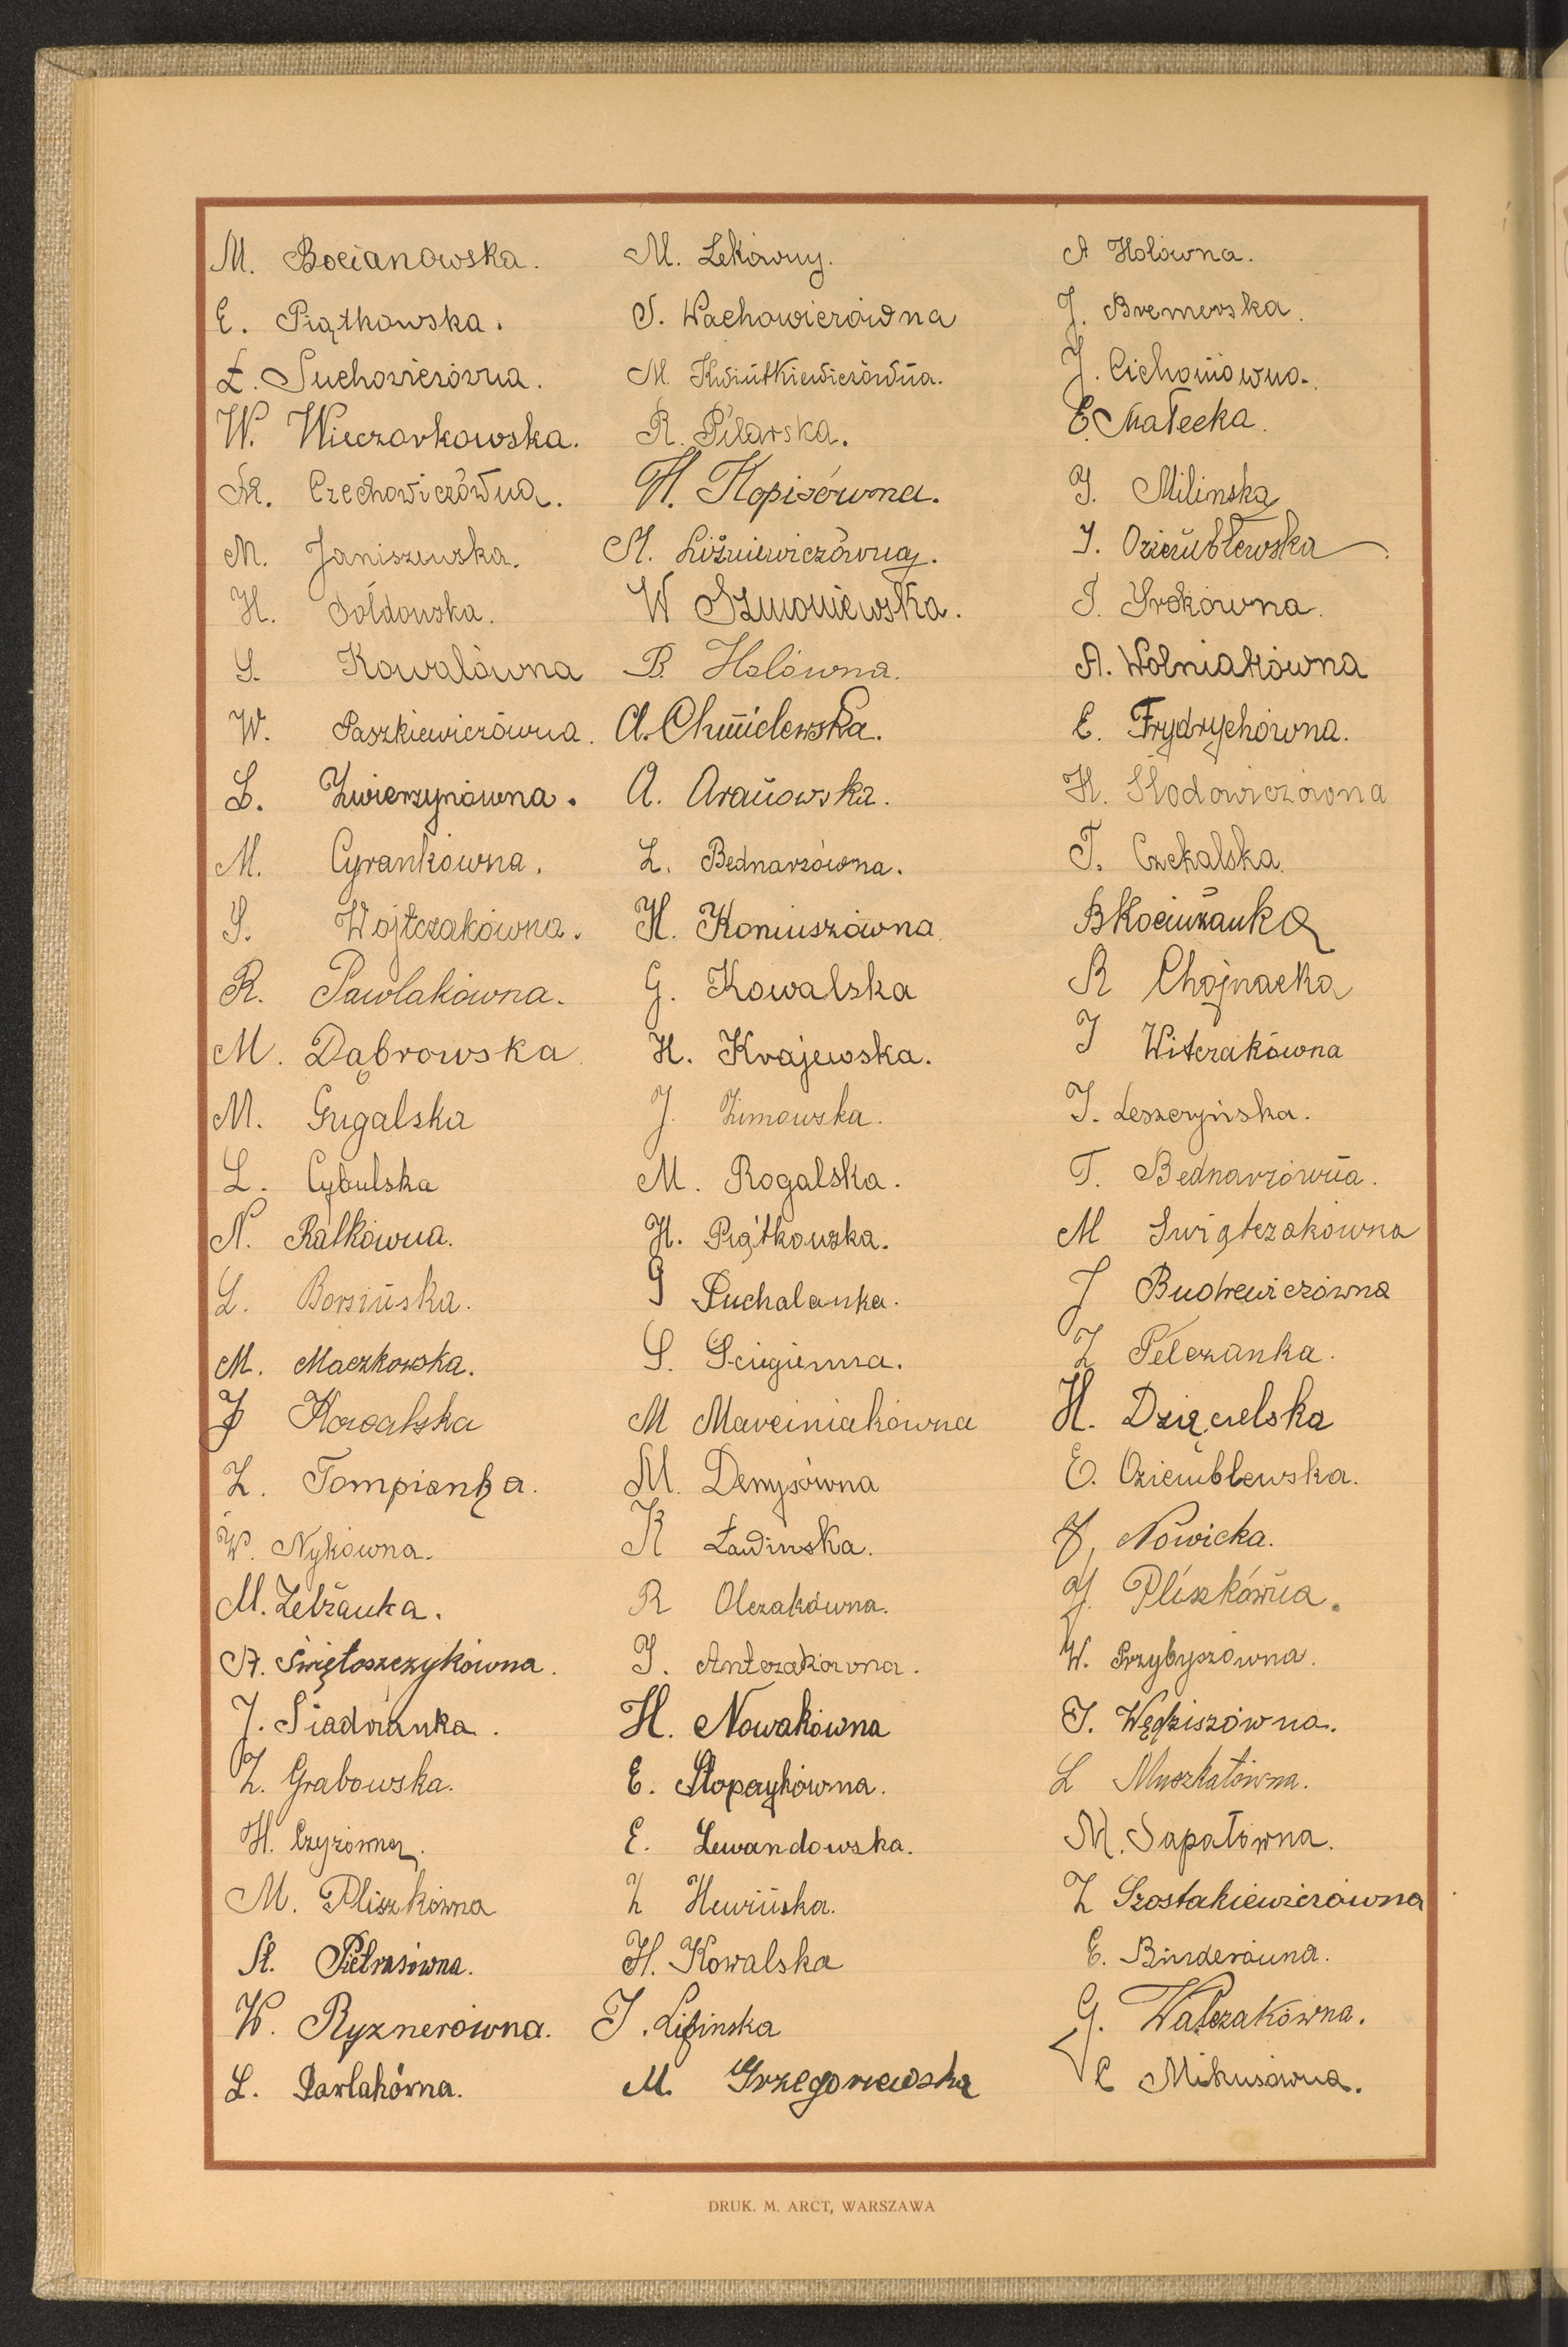 M. Bocianowska.
E. Piątkowska.
Z. Suchowiczówna.
W. Wieczorkowska.
M. Czechowiczówna.
M. Janiszewska.
H. Dołdowska.
S. Kowalówna
W. Paszkiewiczówna.
L. Zwierzynówna.
M. Cyrankówna.
S. Wojtczakówna.
R. Pawlakówna.
M. Dąbrowska
M. Gugalska
L. Cybulska
N. Ratkówna.
L. Borsińska.
M. Maczkowska.
J Kowalska
Z. Tompianka.
W. Nykówna.
M. Zebżanka.
A. Świętoszczykówna.
J. Siadwianka.
Z. Grabowska.
H. Czyżówna.
M. Pliszkówna
St. Pietrasówna.
W. Ryznerówna.
L. Pawlakówna.
M. Lekówny.
S. Wachowiczówna
M. Kwiutkiewiczówna.
R. Pilarska.
H. Kopisówna.
M. Liźniewiczówną.
W Szmoniewska.
B. Holówna.
A. Chmielewska.
A. Arańowska.
L. Bednarzówna.
H. Koniuszówna
G. Kowalska
H. Krajewska.
J. Zimowska.
M. Rogalska.
H. Piątkowska.
J Puchalanka.
S. Sciegienna.
M Marciniakówna
M. Denysówna
K Ławinska.
R Olczakówna.
J. Antczakówna.
H. Nowakówna
E. Stopczykówna.
E. Lewandowska.
Z Hewińska.
H. Kowalska
J. Lipinska
M. Grzegorzewska
A Holówna.
J. Bremerska.
J. Cichoniówna.
E. Małecka.
J. Milinska
J. Oziembłewska
J. Srokówna.
A. Wolniakówna
E. Frydrychówna.
H. Słodowiczówna
T. Czekalska.
B Kociużanka
R Chojnacka
J Witczakówna
J. Leszczyńska.
T. Bednarzówna.
M Świątczakówna
J Budrewiczówna
Z Pelczanka.
H. Dzięcielska
E. Oziembłewska.
J. Nowicka.
J. Pliszkówna.
W. Przybyszówna.
J. Wędziszówna.
L Muszkatówna.
M. Sapatówna.
Z Szostakiewiczówna
E. Binderówna.
G. Walczakówna.
C Mikusówna.
DRUK. M. ARCT, WARSZAWA